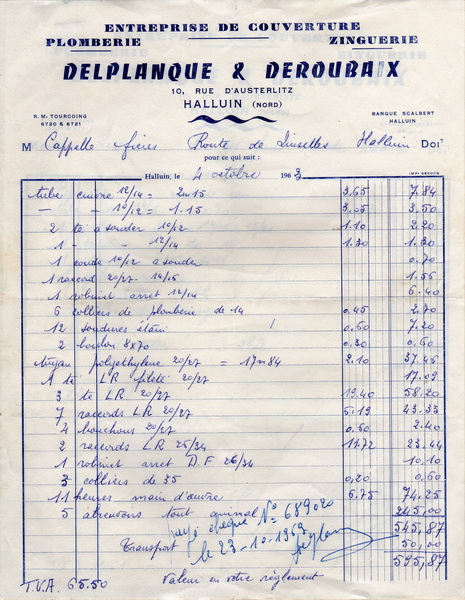 ENTREPRISE DE COUVERTURE
PLOMBERIE ZINGUERIE
DELPLANQUE & DEROUBAIX
10, RUE D'AUSTERLITZ
HALLUIN (NORD)
R. M. TOURCOING
6720 & 6721
BANQUE SCALBERT
HALLUIN
M Cappelle frères Route de Linselles Halluin DOIT
pour ce qui suit :
Halluin, le 4 octobre 1963
tube cuivre 12/14 = 2m15 3.65 7.84
— — 10/12 = 1.15 3.05 3.50
2 té a souder 10/12 1.10 2.20
1 - - 12/14 1.30 1.30
1 coude 10/12 a souder 0.70
1 raccord 20/27 1.55
1 robinet arret 12/14 6.40
6 colliers de plomberie de 14 0.45 2.70
12 soudures étain 0.60 7.20
2 boulon 8x70 0.30 0.60
tuyau polyethylene 20/27 = 17m84 2.10 37.45
1 té LR fileté 20/27 17.09
3 té LR 20/27 19.40 58.20
7 raccords LR 20/27 6.19 43.33
4 bouchons 20/27 0.60 2.40
2 raccords LR 26/34 11.72 23.44
1 robinet arret D.F 26/34 10.10
3 colliers de 35 0.20 0.60
11 heures main d'œuvre 6.75 74.25
5 abreuvoirs tout animal 245,00
payé chèque N° 689020
545,87
le 23-10-1963
Transport 50,00
595,87
T.V.A. 65.50 Valeur en votre règlement